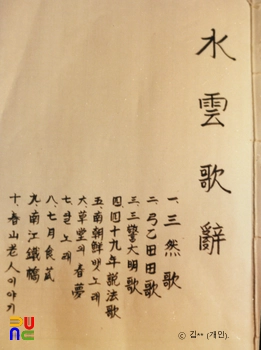 水雲歌辭
一. 三然歌
二. 弓乙田田歌
三. 三警大明歌
四. 四十九年說法歌
五. 南朝鮮뱃노래
六. 草堂의 春夢
七. 달노래
八. 七月食苽
九. 南江鐵橋
十. 春山老人이야기
ⓒ 김** (개인).